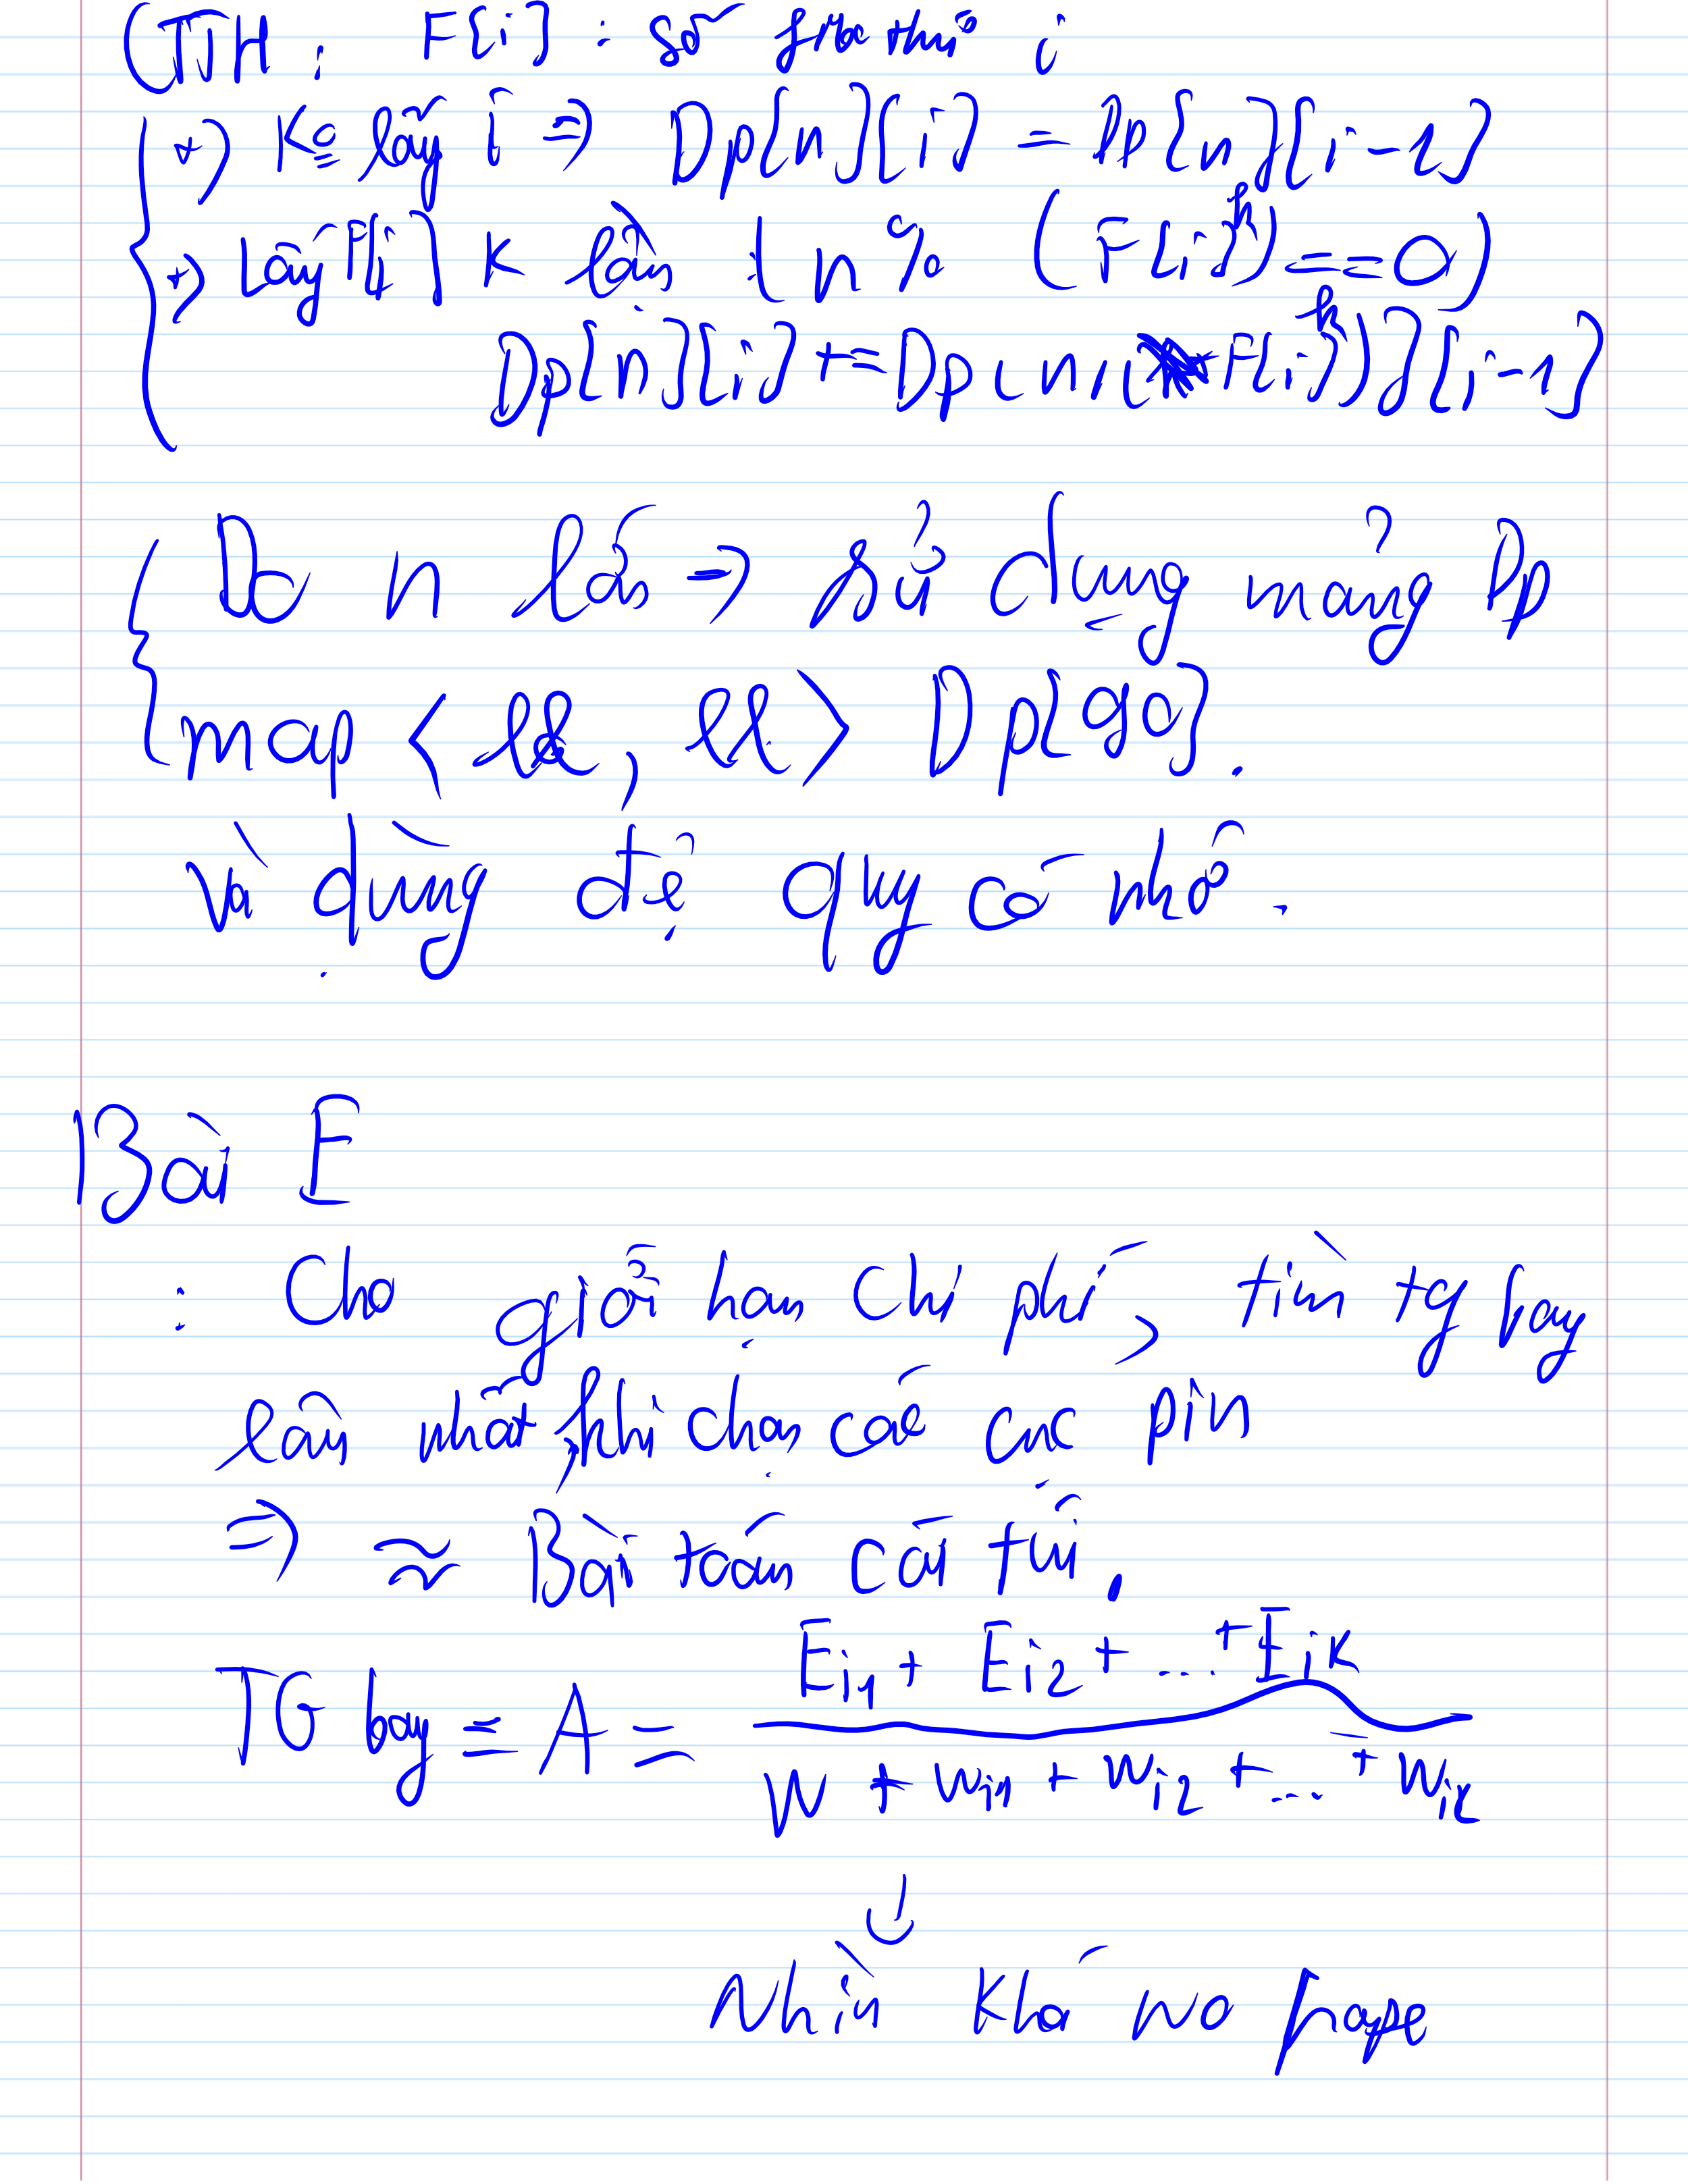 CTTH: F[i]: số fibo thứ i
+) K lấy i => Dp[n][i] = Dp[n][i-1]
+) Lấy F[i] k lần (n % (F[i]^k) == 0)
Dp[n][i] += Dp[n/(F[i]^k)][i-1]
Do n lớn => sử dụng mảng Dp
map <ll, ll> Dp[90].
và dùng đệ quy có nhớ.
Bài E
: Cho giới hạn chi phí, tìm tg bay
lớn nhất khi chọn các cục pin
=> ≈ Bài toán cái túi.
TG bay = A = (E_{i1} + E_{i2} + ... + E_{ik}) / (W + w_{i1} + w_{i2} + ... + w_{ik})
Nhìn khá no hope